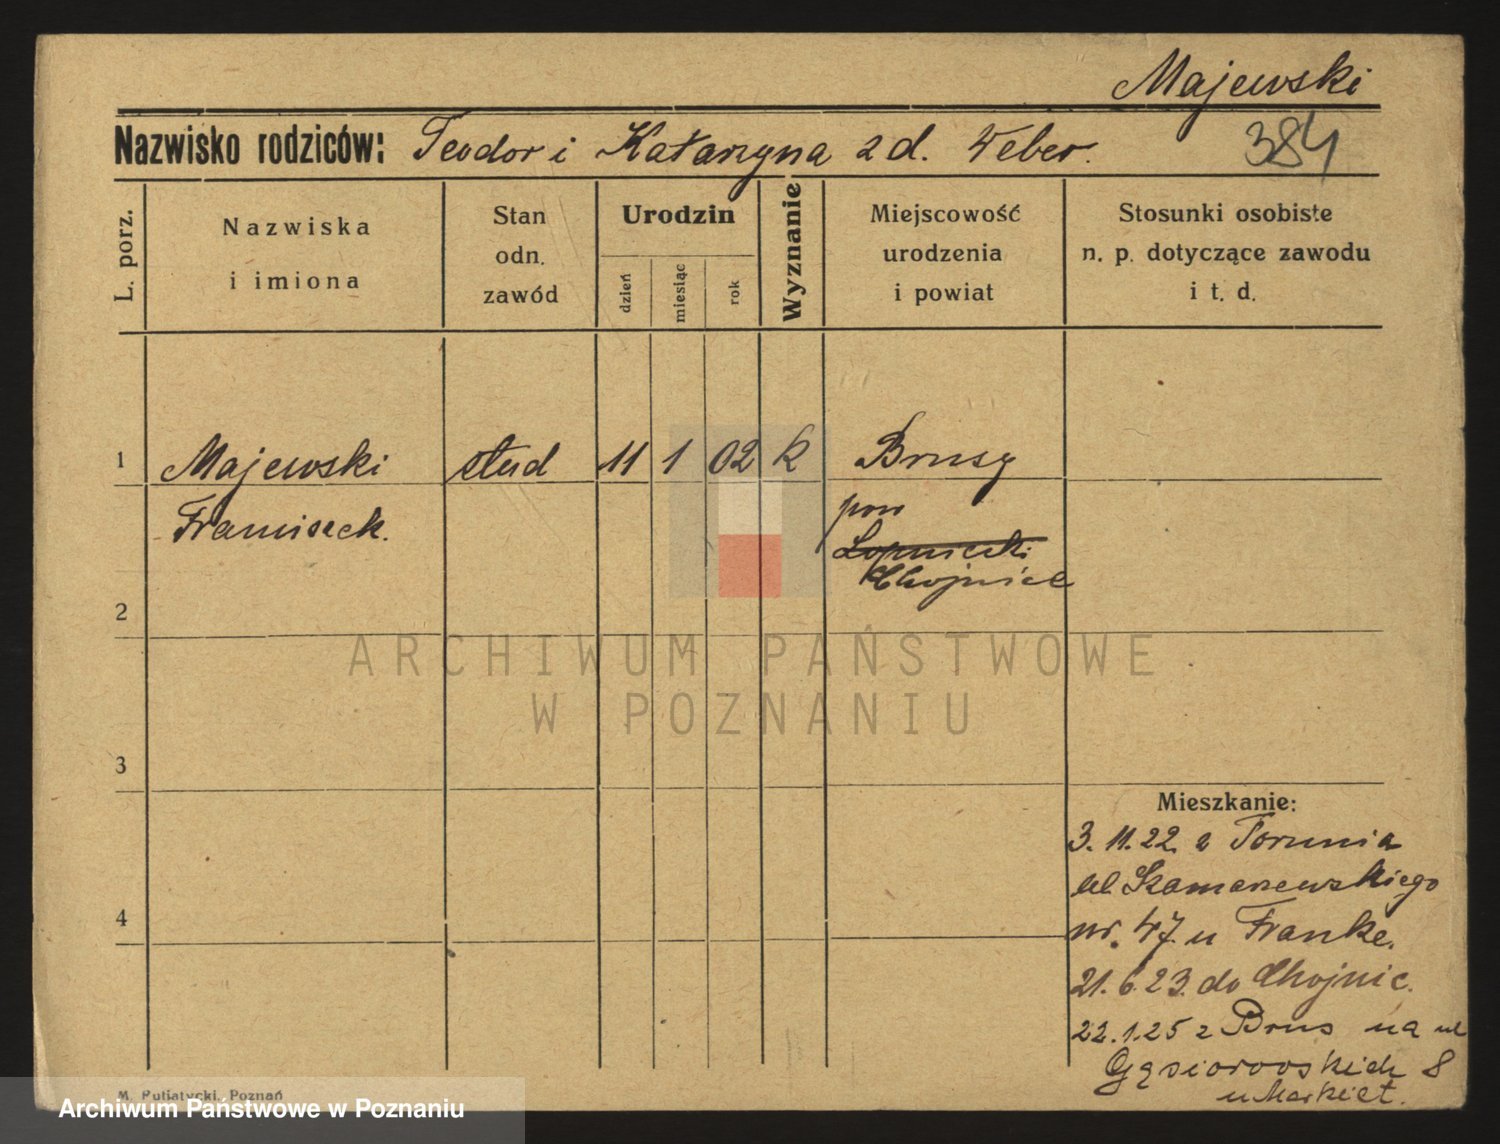 Majewski
Nazwisko rodziców: Teodor i Katarzyna z d. Weber.
384
L. porz.
Nazwiska
i imiona
Stan
odn.
zawód
Urodzin
dzień
miesiąc
rok
Wyznanie
Miejscowość
urodzenia
i powiat
Stosunki osobiste
n. p. dotyczące zawodu
i t. d.
1 Majewski stud 11 1 02 k Brusy
Franciszek. pow
Chojnice
2
ARCHIWUM PAŃSTWOWE
W POZNANIU
3
Mieszkanie:
3. 11. 22 z Torunia
ul. Szamarzewskiego
nr. 47 u Franke.
4
21. 6. 23. do Chojnic.
22. 1. 25 z Brus na ul
Gąsiorowskich 8
u
M. Putiatycki, Poznań
Archiwum Państwowe w Poznaniu